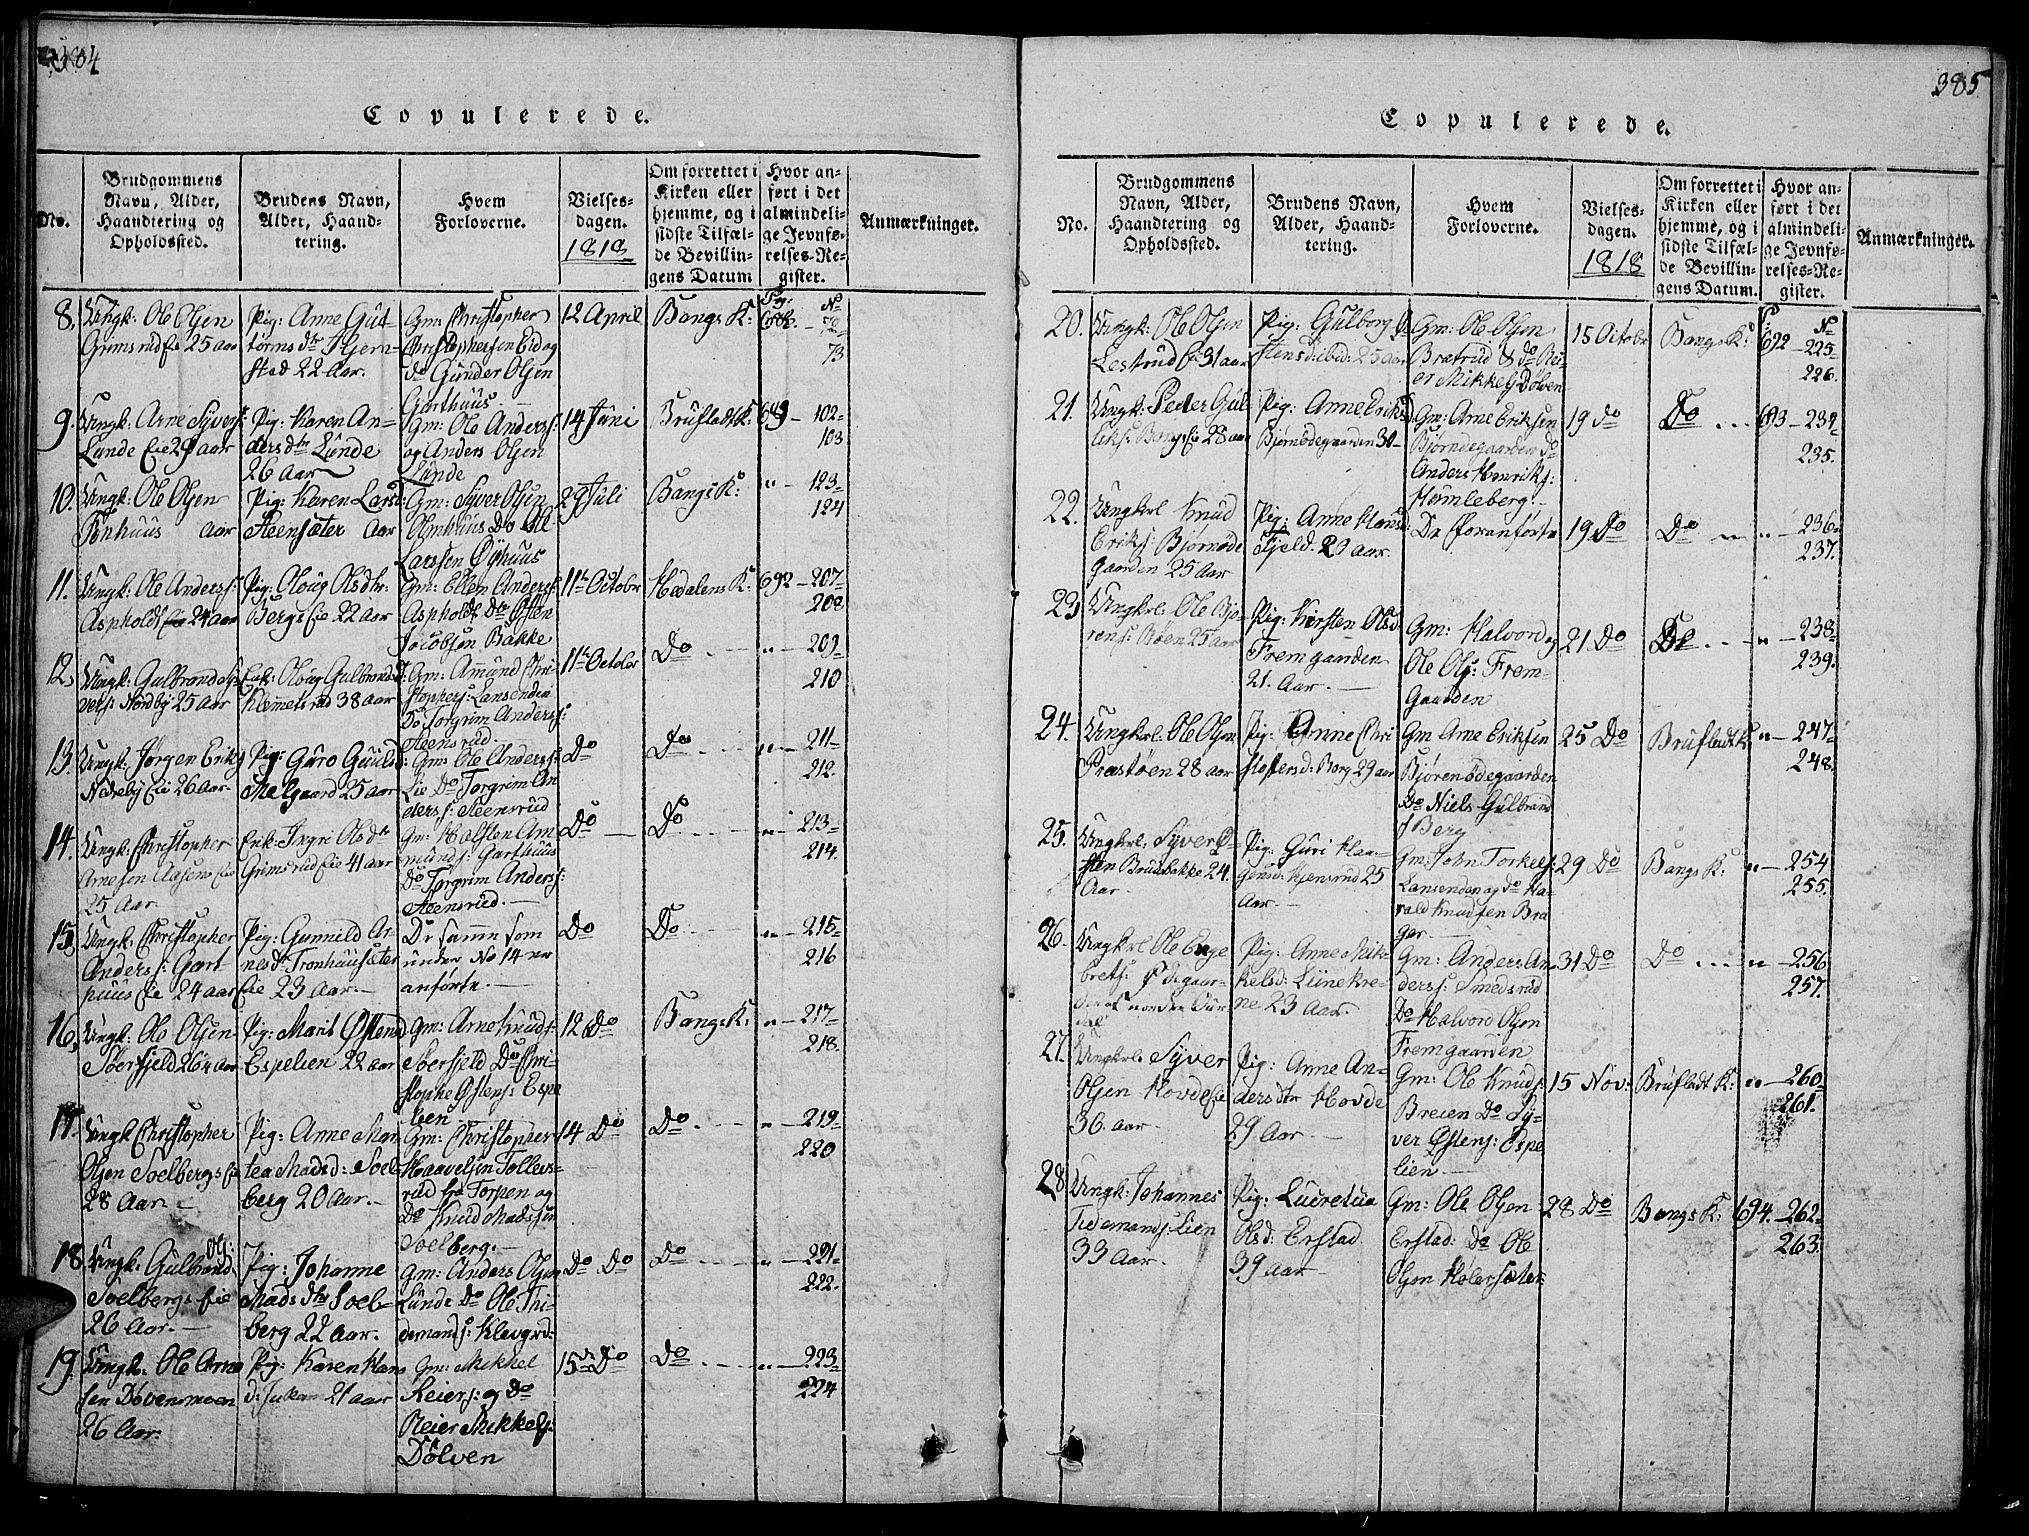 384
Copulerede.
No.
Brudgommens Navn, Alder, Haandtering og Opholdssted.
Brudens Navn, Alder, Haandtering.
Hvem Forloverne.
Vielses-dagen. 1818
Om forrettet i Kirken eller hjemme, og i sidste Tilfælde Bevillingens Datum
Hvor anført i det almindelige Jevnførelses-Register.
Anmærkninger.
8. Ungk: Ole Olsen
Grimsrud Eie 25 aar
Pig: Anne Gut
torms dtr Hjern
stad 22 Aar.
Gm: Christopher
Christophersen Eid og
do Gunder Olsen
Garthuus.
12 April
Bangs K:
Pag. 688. No 72
73
9. Ungk: Arne Syvers:
Lunde Eie 29 aar
Pig: Karen An-
ders dtr Lunde
26 Aar
Gm: Ole Anders:
og Anders Olsen
Lunde
14 Juni
Brufladt K:
689 - 102-
103
10. Ungk: Ole Olsen
Tonhuus aar
Pig: Karen Lars:
Steensæter Aar
Gm: Syver Olsen
Olmhuus Do Ole
Larssen Øyhuus
29 Juli
Bangs K:
" - 123-
124
11. Ungk: Ole Anders:
Aspholdt Eie 24 aar
Pig: Oloug Olsdtr:
Bergs Eie 22 aar
Gm: Ellen Anders:
Aspholdt Do Østen
Jacobsen Bakke
11te Octobr
Hedalens K:
692 - 207-
208
12. Ungk: Gulbrand Sy
vers: Nordby 25 aar
Enk: Oloug Gulbrandsd
Klemetsrud 38 aar
Gm: Amund Chri
stophers: Lansenden
Do Torgrim Anders:
Steensrud.
11te October
Do
" - 209-
210
13. Ungk: Jørgen Eriks
Nedreby Eie 26 Aar.
Pig: Guro Guulsd:
Melgaard 25 aar
Gm: Ole Anders:
Lie Do Torgrim An
ders: Steensrud
Do
Do
" - 211-
212.
14. Ungk: Christopher
Arnesen Aasens Eie
25 Aar
Enk: Ingri Ols dtr
Grimsrud Eie 41 aar
Gm: Halsten Am
munds: Garthuus
Do Torgrim Anders:
Steensrud.
Do
Do
" - 213-
214.
15. Ungk: Christopher
Anders: Gart
huus Eie 24 aar
Pig: Gunnild Ar
nesdr Tronhuusæter
Eie 23 Aar.
De samme som
under No 14 er
anførte.
Do
Do
" - 215-
216
16. Ungk: Ole Olsen
Soerfjeld 26 1/2 aar
Pig: Marit Østensd
Espelien 22 aar
Gm: Arne Knuds:
Soerfjeld Do Chri
stophe Østens: Espe
lien
12 Do
Bangs K:
" - 217-
218.
17. Ungk Christopher
Olsen Soelbergs Eie
28 Aar.
Pig: Anne Mar
tea Madsd: Soel
berg 20 Aar.
Gm: Christopher
Haavelsen Tollevs-
rud fra Torpen og
Do Knud Madssen
Soelberg.
14 Do
Do
" - 219-
220
18 Ungk: Gulbrand Ols:
Soelbergs Eie
26 Aar.
Pig: Johanne
Mads dtr Soel-
berg 22 Aar.
Gm: Anders Olsen
Lunde Do Ole Thi
demands: Klevgrd:
Do Do
Do
" - 221-
222.
19. Ungk: Ole Arne
sen Dovenmoen
26 Aar.
Pig: Karen Hans
d: Jukam 21 aar
Gm: Mikkel
Reiers: og do
Reier Mikkels:
Dølven
15de Do
Do
" - 223-
224
385.
Copulerede.
No.
Brudgommens Navn, Alder, Haandtering og Opholdssted.
Brudens Navn, Alder, Haandtering.
Hvem Forloverne.
Vielses-dagen. 1818
Om forrettet i Kirken eller hjemme, og i sidste Tilfælde Bevillingens Datum.
Hvor anført i det almindelige Jevnførelses-Register.
Anmærkninger.
20. Ungk: Ole Olsen
Lestrud Eie 31 aar
Pig: Gulborg Ø-
stensd: ibid: 25 aar
Gm: Ole Olsen
Bratrud & do Rei
er Mikkels Dølven
15 Octobr
Bangs K:
P. 692 - No 225-
226.
21. Ungk: Peder Gul
Eriks: Bangs Eie 28 aar
Pig: Anne Eriksd
Bjørnødegaarden 30-
Gm: Arne Eriksen
Bjørndegaarden do
Anders Henriks:
Hømleberg.
19 do
Do
693 - 234-
235.
22. Ungkrl Knud
Eriks: Bjørnøde
gaarden 25 Aar
Pig: Anne Hans:
Fjeld. 29 aar.
De foranførte
19 Do
Do
" - 236-
237.
23 Ungkrl. Ole Bjø
rens: Røen 25 aar
Pig: Kirsten Olsd
Fremgaarden
21. Aar.
Gm: Halvord og
Ole Ols: Frem-
Gaarden
21 Do
Do
" - 238-
239.
24. Ungkrl. Ole Olsen
Præstøen 28 aar
Pig: Anne Chri
stoffersd: Berg 29 aar
Gm Arne Eriksen
Bjørenødegaarden
Do Niels Gulbrand
s Berg
25 Do
Bruflad K:
" - 247-
248.
25. Ungkrl. Syver Ø-
sten Brudebakke 24.
Aar.
Pig: Guri Haa-
gensd: Hjensrud 25
Aar.
Gm: John Torkels:
Lansenden og do Ha-
rald Knudsen Bra
ger
29 Do
Bangs K:
" - 254
255.
26. Ungkrl Ole Enge
brets:
Pig: Anne Mik-
kelsd: Lünekre-
ne 23 Aar.
Gm: Anders An
ders: Smedsrud
Do Halvord Olsen
Fremgaarden
31 Do
Do
" - 256
257.
27. Ungkrl. Syver
Olsen Hovds Eie
36. aar.
Pig: Anne An-
dersdtr Hovde
29 Aar.
Gm: Ole Knuds:
Breien Do Sy-
ver Østens: Espe
lien
15 Nov:
Brufladt K:
" - 260-
261.
28 Ungk: Johannes
Tidemands: Lien
33 Aar.
Pig: Lucretia
Olsd: Erstad
39 aar
Gm: Ole Olsen
Erstad: Do Ole
Olsen Holersæter
28 Do
Bangs K:
694. - 262-
263.